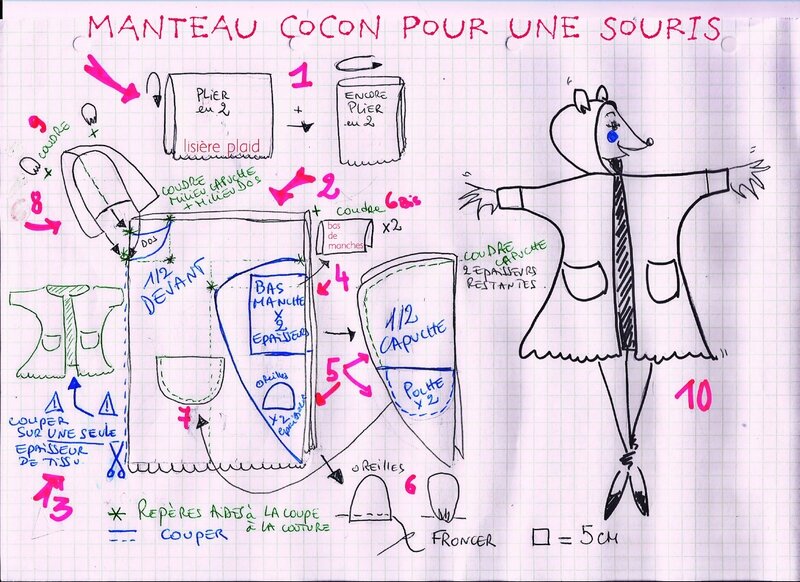 MANTEAU COCON POUR UNE SOURIS
1
PLIER
en 2
lisière plaid
+
ENCORE
PLIER
en 2
9
COUDRE
+
+
8
COUDRE
MILIEU CAPUCHE
+ MILIEU DOS
2
DOS
1/2
DEVANT
+
coudre
6 Bis
bas
de
manches
x2
4
BAS
MANCHE
x
2
EPAISSEURS
COUDRE
CAPUCHE
2 EPAISSEURS
RESTANTES
1/2
CAPUCHE
5
POCHE
x 2
OREILLES
x2
épaisseurs
7
COUPER
SUR UNE SEULE
EPAISSEUR
DE TISSU
3
OREILLES
6
FRONCER
10
REPÈRES AIDES À LA COUPE
À LA COUTURE
COUPER
= 5 CM